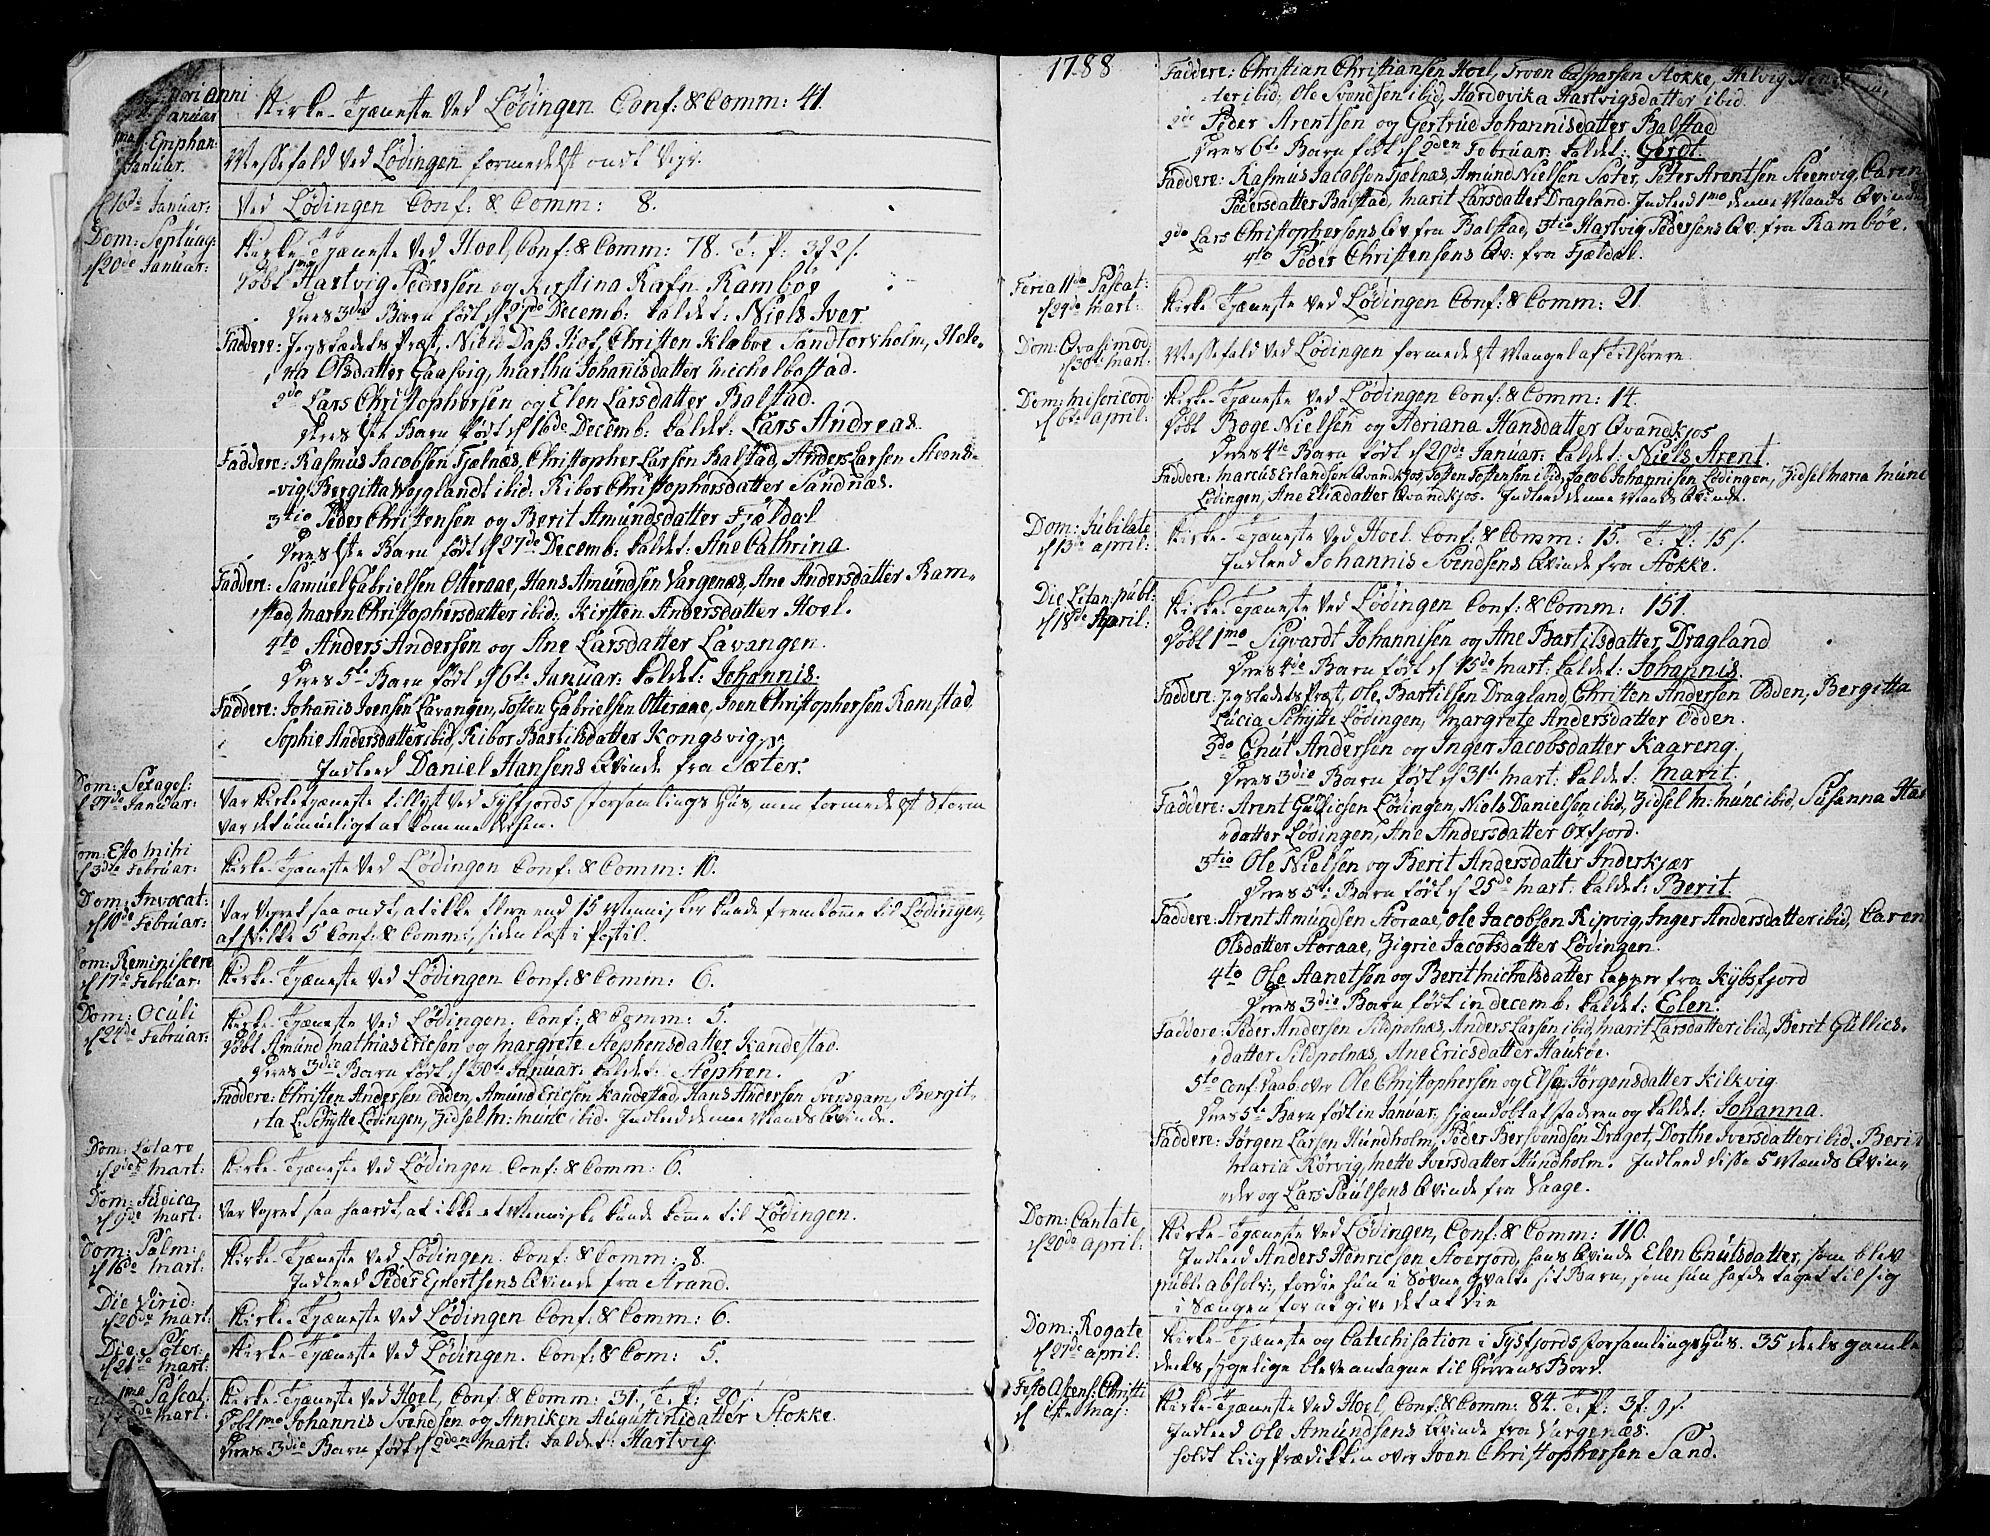 ori anni
Januar
Kirke-Tjæneste ved Lødingen Conf: & Comm: 41.
1ma Epiphan:
Januar.
Messefald ved Lødingen formedelst ondt Vejr.
d 16de Januar:
Ved Lødingen Conf: & Comm: 8.
Dom: Septuag:
d 20de Januar:
Kirke-Tjæneste ved Hoel, Conf: & Comm: 78. T. P:
Døbt 1mo Hartvig Pedersen og Kirstina Rafn Rambøe
Deres 3die Barn født d 27de Decemb: kaldet: Niels Iver
Faddere: Jeg stædets Præst, Niels Dass Hof, Christen Klæboe Sandtorsholm, Hele-
na Olsdatter Gaasvig, Martha Johannisdatter Michelbostad.
2do Lars Christophersen og Elen Larsdatter Balstad.
Deres 1ste Barn født d 16de Decemb: kaldet: Lars Andreas.
Faddere: Rasmus Jacobsen Fjælnæs, Christopher Larsen Balstad, Anders Larsen Steens-
-vig, Bergitta Weyglandt ibid: Kibor Christophersdatter Sandnæs.
3tio Peder Christensen og Berit Amundsdatter Fjældal
Deres 1ste Barn født d 27de Decemb: kaldet: Ane Cathrina
Faddere: Samuel Gabrielsen Otteraae, Hans Amundsen Vargenæs, Ane Andersdatter Ram-
stad, Maren Christophersdatter ibid: Kirsten Andersdatter Hoel.
4to Anders Andersen og Ane Larsdatter Lavangen
Deres 5te Barn født d 6te Januar: kaldet: Johannis.
Faddere: Johannis Joensen Lavangen, Tosten Gabrielsen Otteraae, Joen Christophersen Ramstad,
Sophie Andersdatter ibid, Kibor Bartilsdatter Kongsvig,
Indleed Daniel Hansens Qvinde fra Sæter.
Dom: Sexages:
d 27de Januar:
Var Kirketjæneste tillyst ved Tysfjords forsamlings Huus, men formedelst Storm
var det umueligt at komme
Dom: Esto Mihi
d 3die Februar:
Kirke-Tjæneste ved Lødingen Conf: & Comm: 10.
Dom: Invocat:
d 10de Februar:
Var Vejret saa ondt, at ikke flere end 15 Mennisker kunde fremkomme til Lødingen,
af hvilke 5 Conf: & Comm:, siden læst i Postil.
Dom: Reminiscere
d 17de Februar:
Kirke-Tjæneste ved Lødingen Conf: & Comm: 6.
Dom: Oculi
d 24de Februar:
Kirke-Tjæneste ved Lødingen. Conf: & Comm: 5.
Døbt Amund Mathias Ericsen og Margrete Stephensdatter Kandestad.
Deres 3die Barn født d 30te Januar: kaldet: Stephen.
Faddere: Christen Andersen Odden, Amund Ericsen Kandestad, Hans Andersen Svensgam, Bergit-
ta L: Schytte Lødingen, Zidsel M: Munc ibid. Indleed denne Mands Qvinde.
Dom: Lætare
d 2den Mart:
Kirke-Tjæneste ved Lødingen. Conf: & Comm: 6.
Dom: Judica
d 9de Mart:
Var Vejret saa haardt, at ikke et Menniske kunde komme til Lødingen.
Dom: Palm:
d 16de Mart:
Kirke-Tjæneste ved Lødingen. Conf: & Comm: 8.
Indleed Peder Evertsens Qvinde fra Strand.
Die Virid:
d 20de Mart:
Kirke-Tjæneste ved Lødingen Conf: & Comm: 6.
Die Soter:
d 21de Mart:
Kirke-Tjæneste ved Lødingen. Conf: & Com: 5.
1ma Pascat:
Mart:
Kirke-Tjæneste ved Hoel, Conf: & Comm: 31, T. P: 20 s.
Døbt 1mo Johannis Svendsen og Anniken Augustinidatter Stokke.
Deres 3die Barn født d 2den Mart: kaldet: Hartvig.
1788
Faddere: Christian Christiansen Hoel, Troen Casparsen Stokke, Helvig
ter ibid, Ole Svendsen ibid, Hardovika Hartvigsdatter ibid.
2do Peder Arentsen og Gertrud Johannisdatter Balstad
Deres 6te Barn født d 2den Februar: kaldet: Gerdt.
Faddere: Rasmus Jacobsen Fjælnæs, Amund Nielsen Sæter, Peter Arentsen Steenvig, Caren
Pedersdatter Balstad, Marit Larsdatter Dragland. Indleed 1mo denne Mands Qvinde
2do Lars Christophersens Qv: fra Balstad, 3tio Hartvig Pedersens Qv. fra Rambøe.
4to Peder Christensens Qv: fra Fjældal.
Feria 11da Pascat:
d 24de Mart:
Kirke-Tjæneste ved Lødingen Conf: & Comm: 21.
Dom: Qvasimod:
d 30te Mart:
Messefald ved Lødingen formedelst Mangel af Tilhørere
Dom: Misericord:
d 6te April:
Kirke-Tjæneste ved Lødingen Conf: & Comm: 14.
Døbt Boge Nielsen og Adriana Hansdatter Qvandkjos
Deres 4de Barn født d 29de Januar: kaldet: Niels Arent.
Faddere: Marcus Erlandsen Qvandkjos, Tosten Tostensen ibid, Jacob Johannisen Lødingen, Zidsel Maria Munc
Lødingen, Ane Eliædatter Qvandkjos. Indleed denne Mands Qvinde.
Dom: Jubilate
d 13de April:
Kirke-Tjæneste ved Hoel Conf: & Comm: 15. T. P: 15 s.
Indleed Johannis Svendsens Qvinde fra Stokke.
Die Litan: publ:
d 18de April:
Kirke-Tjæneste ved Lødingen Conf: & Comm: 151.
Døbt 1mo Sigvardt Johannisen og Ane Bartilsdatter Dragland
Deres 4de Barn født d 15de Mart: kaldet: Johannis.
Faddere: Jeg stædets Præst, Ole Bartilsen Dragland, Christen Andersen Odden, Bergitta
Lucia Schytte Lødingen, Margrete Andersdatter Odden.
2do Cnut Andersen og Inger Jacobsdatter Kaareng.
Deres 3die Barn født d 31te Mart: kaldet: Marit.
Faddere: Arent Gullicsen Lødingen, Niels Danielsen ibid, Zidsel M: Munc ibid, Susanna
datter Lødingen, Ane Andersdatter Oxfjord.
3tio Ole Nielsen og Berit Andersdatter Inderkjær
Deres 5te Barn født d 25de Mart: kaldet: Berit.
Faddere: Arent Amundsen Storaae, Ole Jacobsen Ripvig, Inger Andersdatter ibid, Caren
Olsdatter Storaae, Zigrie Jacobsdatter Lødingen.
4to Ole Aanetsen og Berit Michelsdatter Lapper fra Kybsfjord
Deres 3die Barn født in Decemb: kaldet: Elen.
Faddere: Peder Andersen Sildpolnæs, Anders Larsen ibid, Marit Larsdatter ibid, Berit Gullics-
datter Sildpolnæs, Ane Ericsdatter Haukøe.
5to Conf: Daab over Ole Christophersen og Else Jørgensdatter Kilkvig
Deres 5te Barn født in Januar, hjemdøbt af Faderen og kaldet: Johanna.
Faddere: Jørgen Larsen Hundholm, Peder Bersvendsen Draget, Dorthe Iversdatter ibid, Berit
Maria Kørvig, Mette Iversdatter Hundholm. Indleed disse 5 Mænds Qvin-
der og Lars Paulsens Qvinde fra Vaage.
Dom: Cantate
d 20de April:
Kirke-Tjæneste ved Lødingen, Conf: & Comm: 110.
Indleed Anders Henricsen Stoerjord, hans Qvinde Elen Cnutsdatter, som blev
publ: absolv:, fordie hun i Søvne qvalte sit Barn, som hun hafde taget til sig
i Sængen for at give det at die
Dom: Rogate
d 27de April:
Kirke-Tjæneste og Catechisation i Tysfjords forsamlings Huus. 35 deels gamle
deels sygelige bleve antagne til Herrens Bord.
Festo Ascens: Christi
d 1ste Maj:
Kirke-Tjæneste ved Hoel, Conf: & Comm: 84. T. P:
Indleed Ole Amundsens Qvinde fra Vargenæs.
Holdt Liig Prædikken over Joen Christophersen Sand.